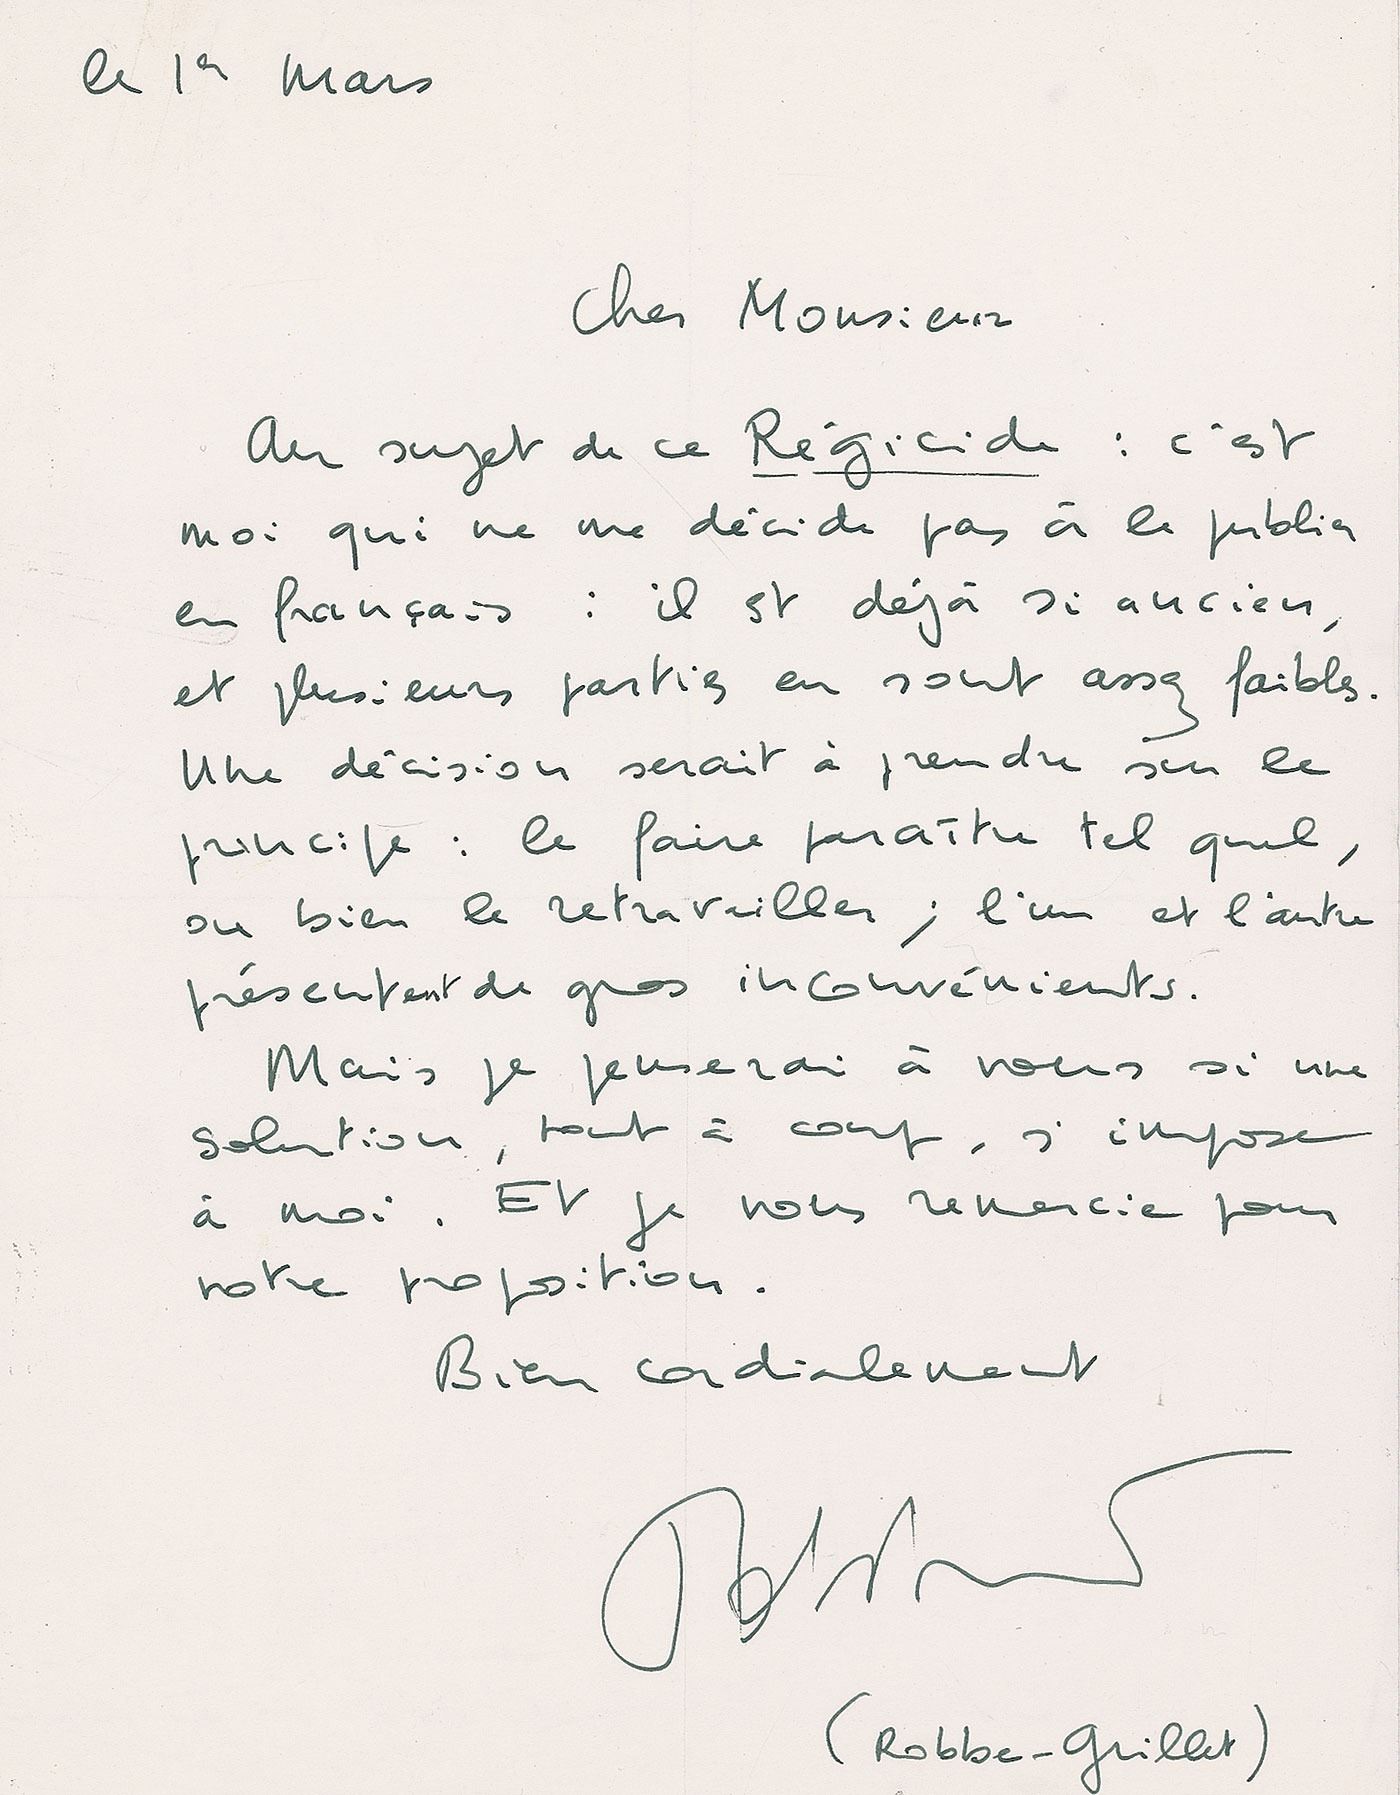 le 1er Mars
Cher Monsieur
Au sujet de ce Régicide : c'est
moi qui ne me décide pas à le publier
en français : il est déjà si ancien,
et plusieurs parties en sont assez faibles.
Une décision serait à prendre sur le
principe : le faire paraître tel quel,
ou bien le retravailler ; l'un et l'autre
présentent de gros inconvénients.
Mais je penserai à vous si une
solution, tout à coup, s'impose
à moi. Et je vous remercie pour
votre proposition.
Bien cordialement
(Robbe-Grillet)